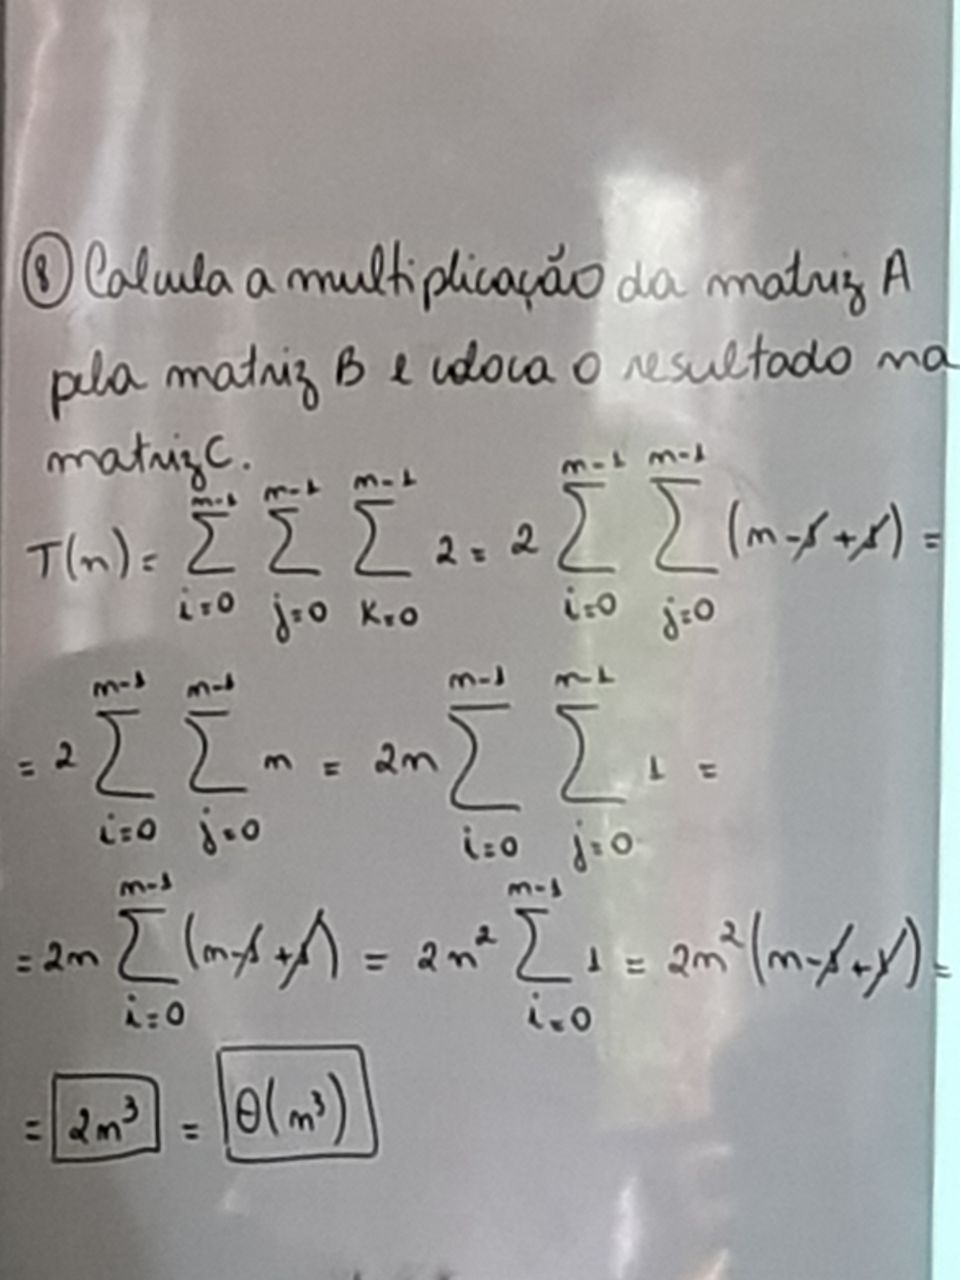 ⑧ Calcula a multiplicação da matriz A
pela matriz B e coloca o resultado na
matriz C.
T(n) = \sum_{i=0}^{n-1} \sum_{j=0}^{n-1} \sum_{k=0}^{n-1} 2 = 2 \sum_{i=0}^{n-1} \sum_{j=0}^{n-1} (n-1+1) =
= 2 \sum_{i=0}^{n-1} \sum_{j=0}^{n-1} n = 2n \sum_{i=0}^{n-1} \sum_{j=0}^{n-1} 1 =
= 2n \sum_{i=0}^{n-1} (n-1+1) = 2n² \sum_{i=0}^{n-1} 1 = 2n² (n-1+1) =
= 2n³ = Θ(n³)